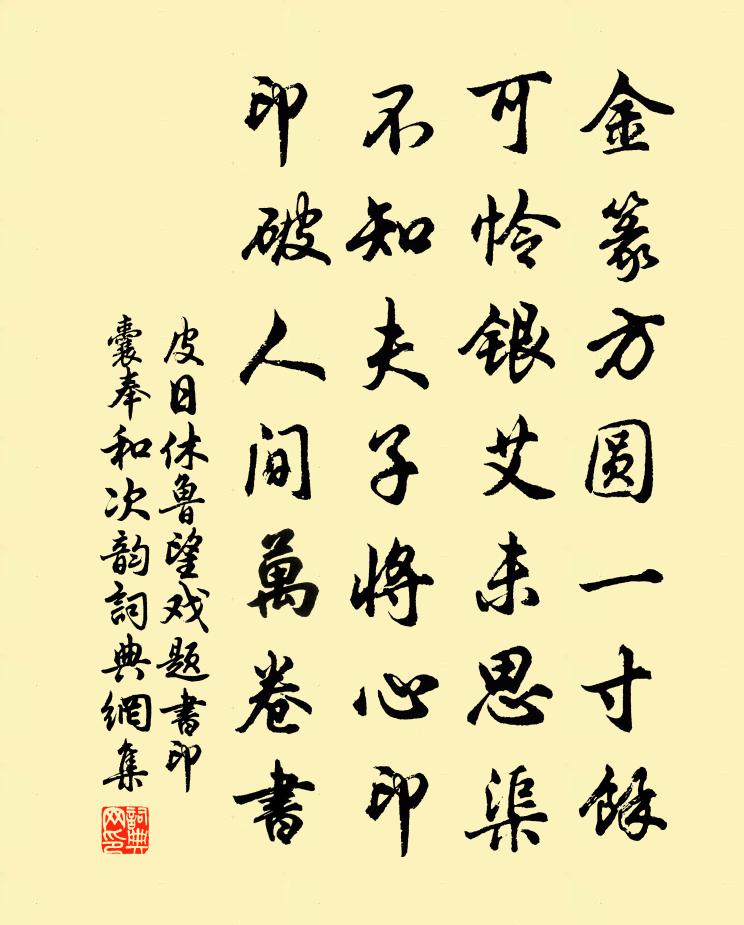 金篆方圆一寸馀
可怜银艾未思渠
不知夫子将心印
印破人间萬卷書
皮日休鲁望戏题書印
囊奉和次韵詞典網集
詞典网印